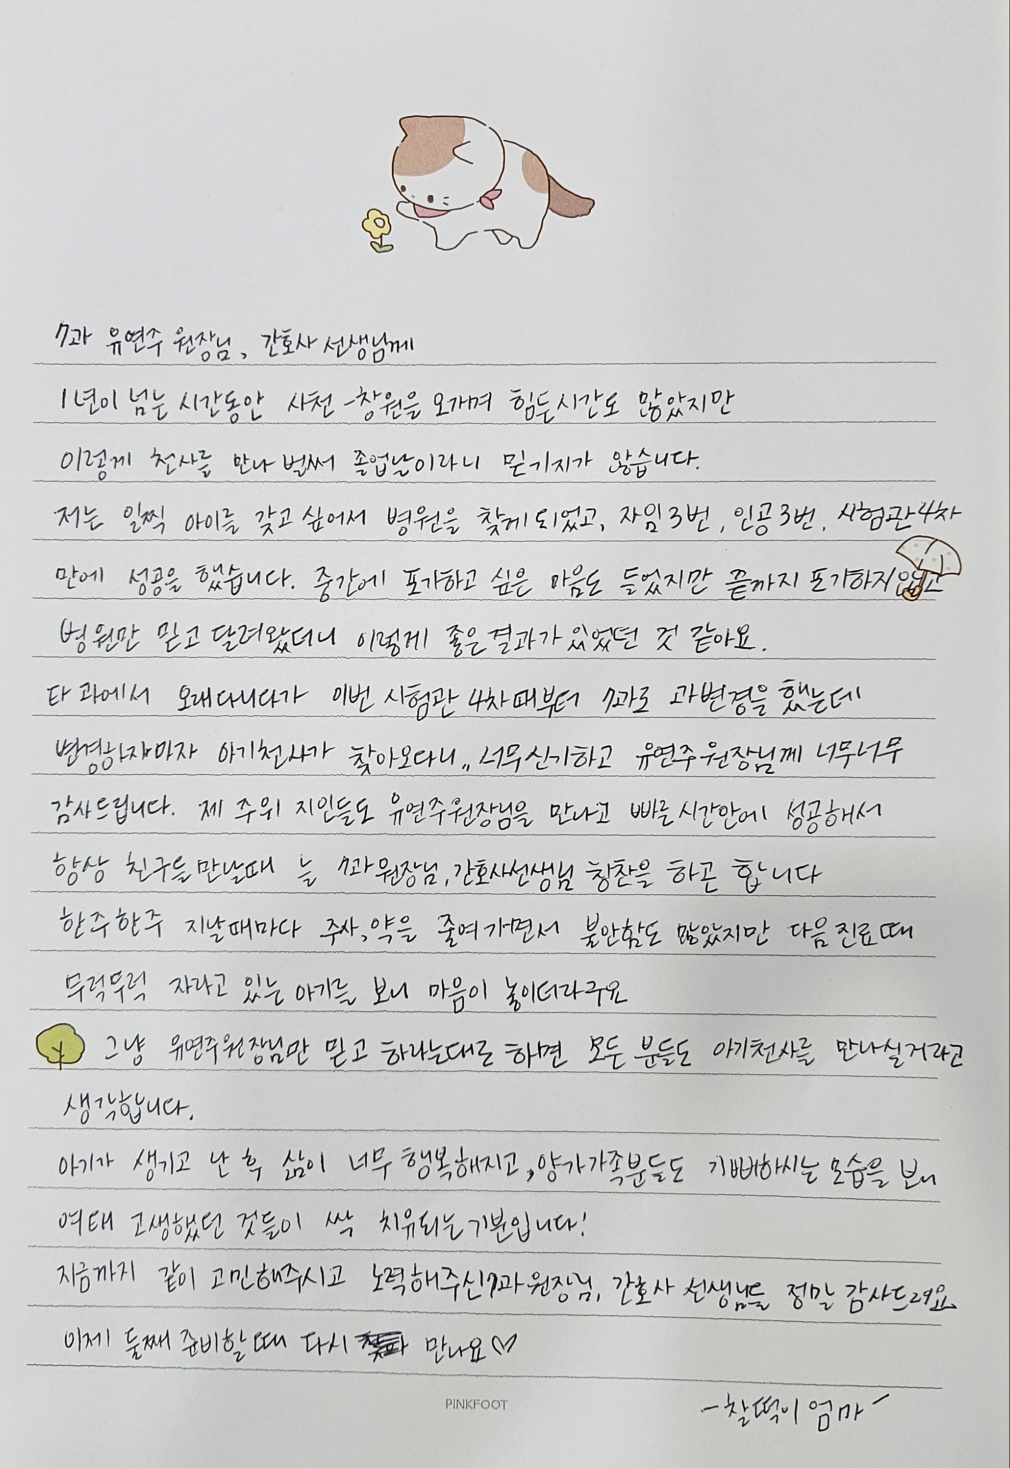 7과 유연주 원장님, 간호사 선생님께
1년이 넘는 시간동안 사천-창원을 오가며 힘든시간도 많았지만
이렇게 천사를 만나 벌써 졸업날이라니 믿기지가 않습니다.
저는 일찍 아이를 갖고 싶어서 병원을 찾게 되었고, 자임3번, 인공3번, 시험관4차
만에 성공을 했습니다. 중간에 포기하고 싶은 마음도 들었지만 끝까지 포기하지않고
병원만 믿고 달려왔더니 이렇게 좋은결과가 있었던 것 같아요.
타 과에서 오래다니다가 이번 시험관 4차때부터 7과로 과변경을 했는데
변경하자마자 아기천사가 찾아오다니,, 너무신기하고 유연주원장님께 너무너무
감사드립니다. 제 주위 지인들도 유연주원장님을 만나고 빠른시간안에 성공해서
항상 친구들만날때 늘 7과원장님,간호사선생님 칭찬을 하곤 합니다
한주한주 지날때마다 주사,약을 줄여가면서 불안함도 많았지만 다음진료때
무럭무럭 자라고 있는 아기를 보니 마음이 놓이더라구요
그냥 유연주원장님만 믿고 하라는대로 하면 모든 분들도 아기천사를 만나실거라고
생각합니다.
아기가 생기고 난 후 삶이 너무 행복해지고,양가가족분들도 기뻐하시는 모습을 보니
여태 고생했던 것들이 싹 치유되는기분입니다!
지금까지 같이 고민해주시고 노력해주신7과원장님, 간호사 선생님들 정말 감사드려요
이제 둘째 준비할때 다시 만나요♡
PINKFOOT
-찰떡이 엄마-